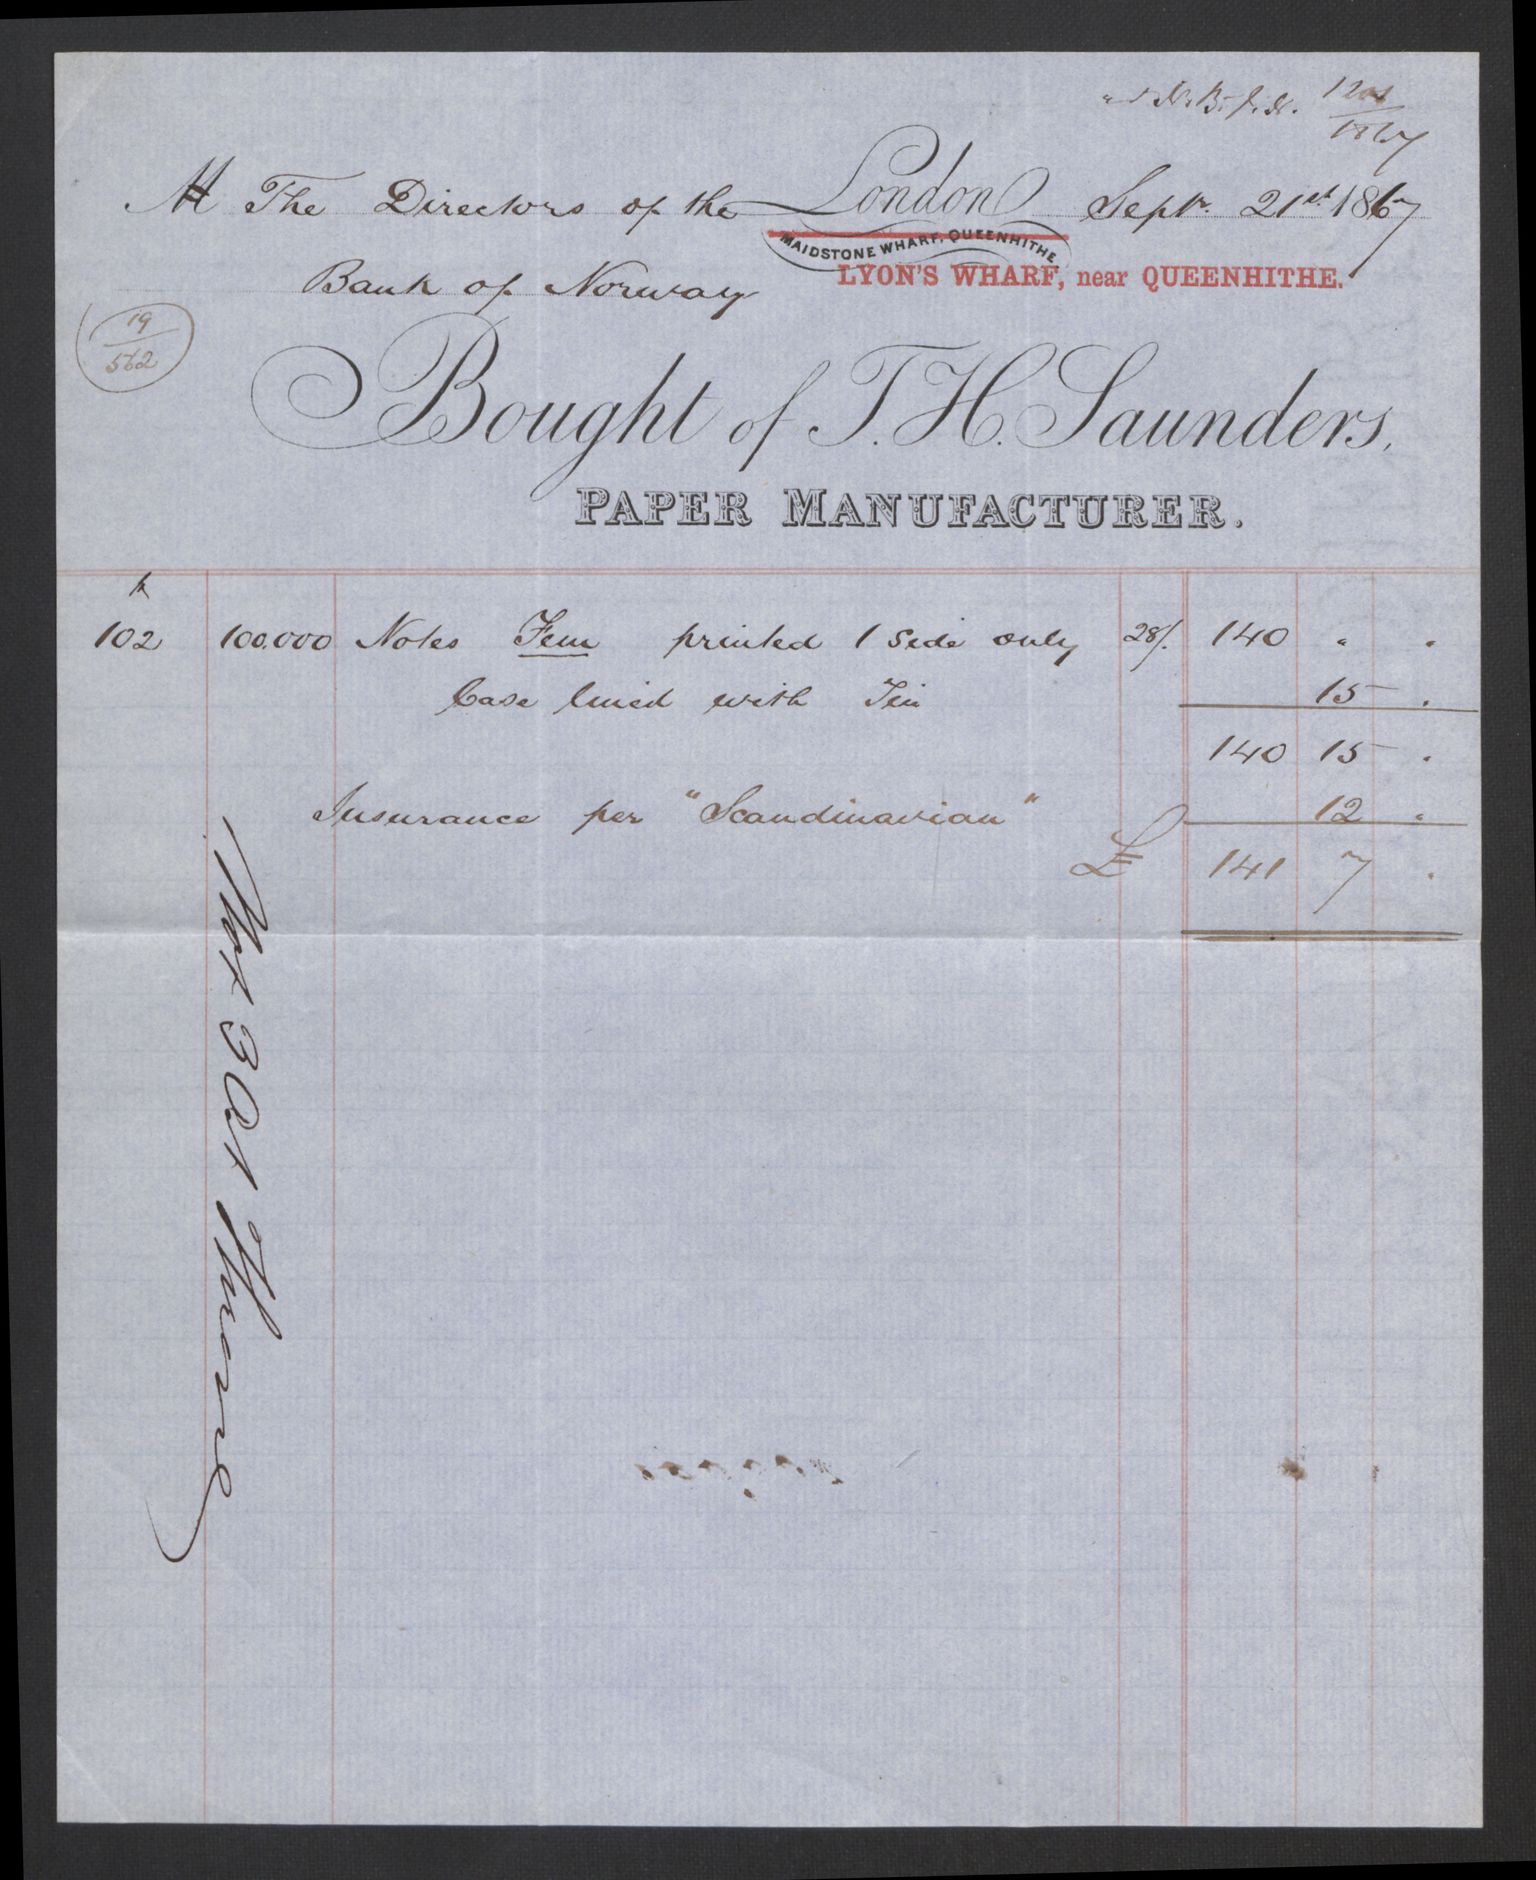 N. B. J. N. 1201/1867
M The Directors of the London Septr. 21st 1867
MAIDSTONE WHARF, QUEENHITHE
Bank of Norway LYON'S WHARF, near QUEENHITHE.
19/562
Bought of T. H. Saunders,
PAPER MANUFACTURER.
102 100.000 Notes Fem printed 1 side only 28/. 140 " "
Case lined with Tin 15 "
140 15 "
Insurance per "Scandinavian" 12 "
£ 141 7 "
Mot 3 Oct